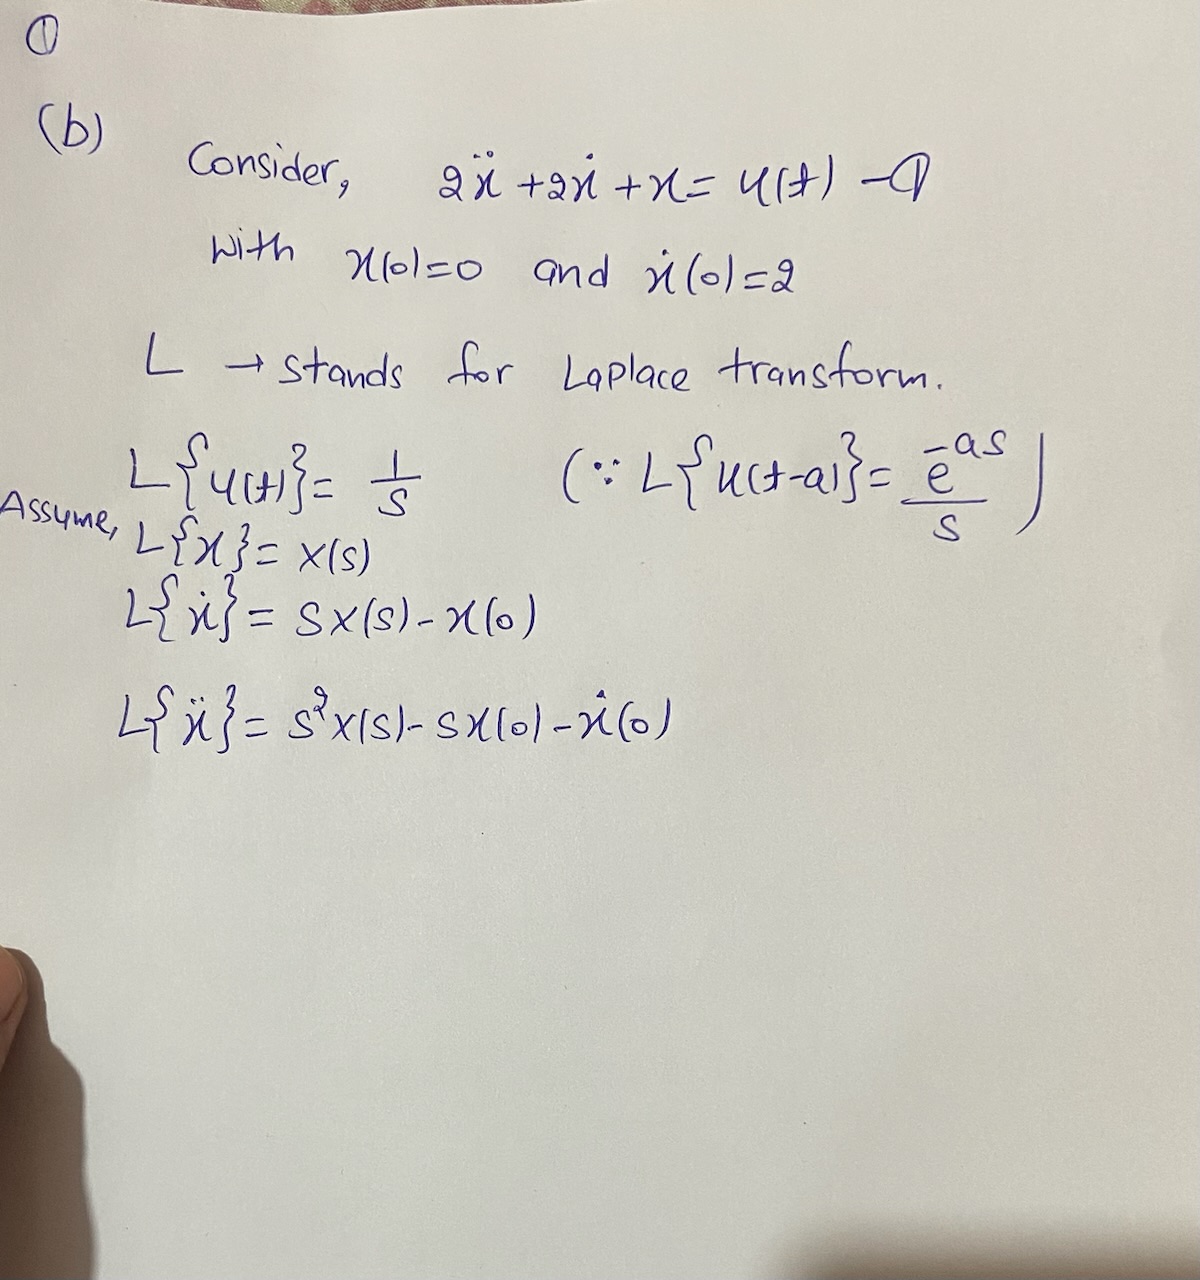 ①
(b)
Consider, 2ẍ + 2ẋ + x = u(t) —①
With x(0)=0 and ẋ(0)=2
L → stands for Laplace transform.
L{u(t)} = 1/s (∵ L{u(t-a)} = e^-as/s)
Assume, L{x} = X(s)
L{ẋ} = sX(s) - x(0)
L{ẍ} = s²X(s) - sx(0) - ẋ(0)